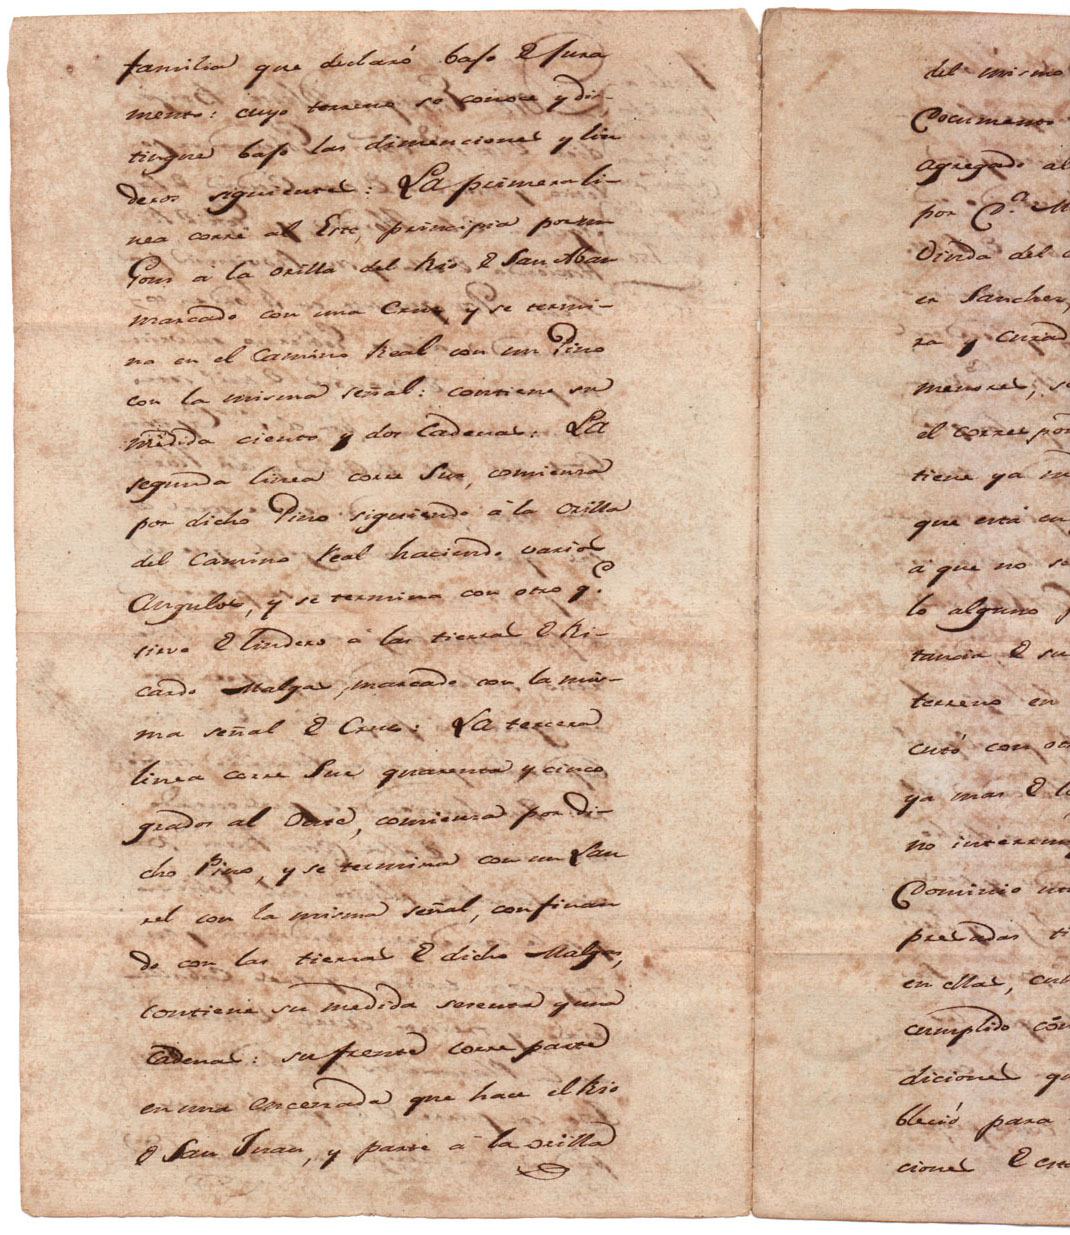 familia que declaró baso D Jura
mento: cuyo terreno se conoce y dis-
tingue baso las dimenciones y lin
deros siguientes: La primera li-
nea corre al Este, principia por un
à la orilla del Rio D San
marcado con una Cruz, y se termi-
na en el Camino Real con un Pino
con la misma señal: contiene su
medida ciento y dos Cadenas: La
segunda linea corre Sur, comienza
por dicho Pino siguiendo à la orilla
del Camino Real haciendo varios
Angulos, y se termina con otro q.e
sirve D lindero à las tierras D Ri-
cardo Malga, marcado con la mis-
ma señal D Cruz: La tercera
linea corre Sur quarenta y cinco
grados al Oeste, comienza por di-
cho Pino, y se termina con un Lau
rel con la misma señal, confinan
do con las tierras D dicho Malga,
contiene su medida sesenta y una
Cadenas: su frente corre parte
en una encerrada que hace el Rio
D San Juan, y parte à la orilla
del mismo
Documento
agregado al
por C.a
Viuda del
en Sanchez,
ra y Curad
menores; se
el corres pon
tiene ya
que está en
a que no se
lo alguno
tancia D su
terreno en
cutó con ot
ya mas D
no interrum
Dominio
precadas ti
en ellas,
cumplido con
diciones qu
bleció para
ciones D esta